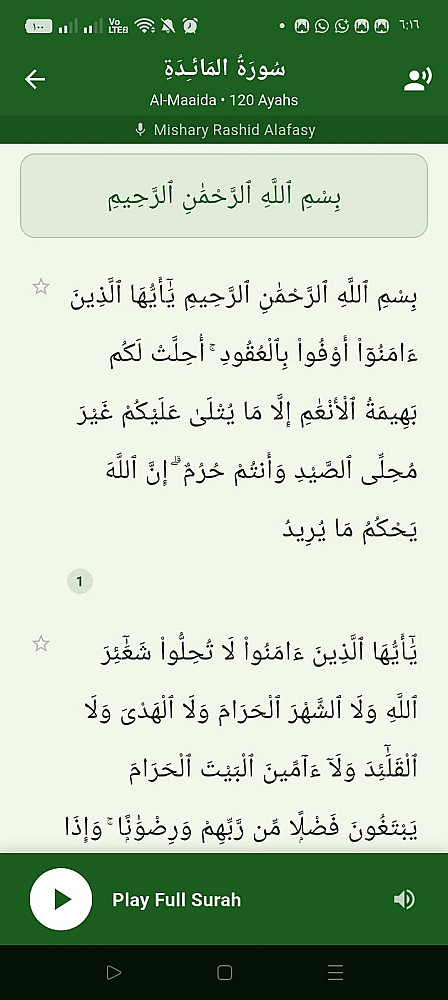 ١٠٠
Vo
LTE2
٦:١٦
سُورَةُ المَائـِدَةِ
Al-Maaida • 120 Ayahs
Mishary Rashid Alafasy
بِسْمِ ٱللَّهِ ٱلرَّحْمَٰنِ ٱلرَّحِيمِ
بِسْمِ ٱللَّهِ ٱلرَّحْمَٰنِ ٱلرَّحِيمِ يَٰٓأَيُّهَا ٱلَّذِينَ
ءَامَنُوٓا۟ أَوْفُوا۟ بِٱلْعُقُودِ ۚ أُحِلَّتْ لَكُم
بَهِيمَةُ ٱلْأَنْعَٰمِ إِلَّا مَا يُتْلَىٰ عَلَيْكُمْ غَيْرَ
مُحِلِّى ٱلصَّيْدِ وَأَنتُمْ حُرُمٌ ۗ إِنَّ ٱللَّهَ
يَحْكُمُ مَا يُرِيدُ
1
يَٰٓأَيُّهَا ٱلَّذِينَ ءَامَنُوا۟ لَا تُحِلُّوا۟ شَعَٰٓئِرَ
ٱللَّهِ وَلَا ٱلشَّهْرَ ٱلْحَرَامَ وَلَا ٱلْهَدْىَ وَلَا
ٱلْقَلَٰٓئِدَ وَلَآ ءَآمِّينَ ٱلْبَيْتَ ٱلْحَرَامَ
يَبْتَغُونَ فَضْلًا مِّن رَّبِّهِمْ وَرِضْوَٰنًا ۚ وَإِذَا
Play Full Surah